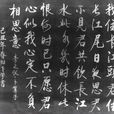 我住長江頭君住
長江尾日日思君
不見君共飲長江
水此水幾時休此
恨何時已只愿君
心似我心定不負
相思意